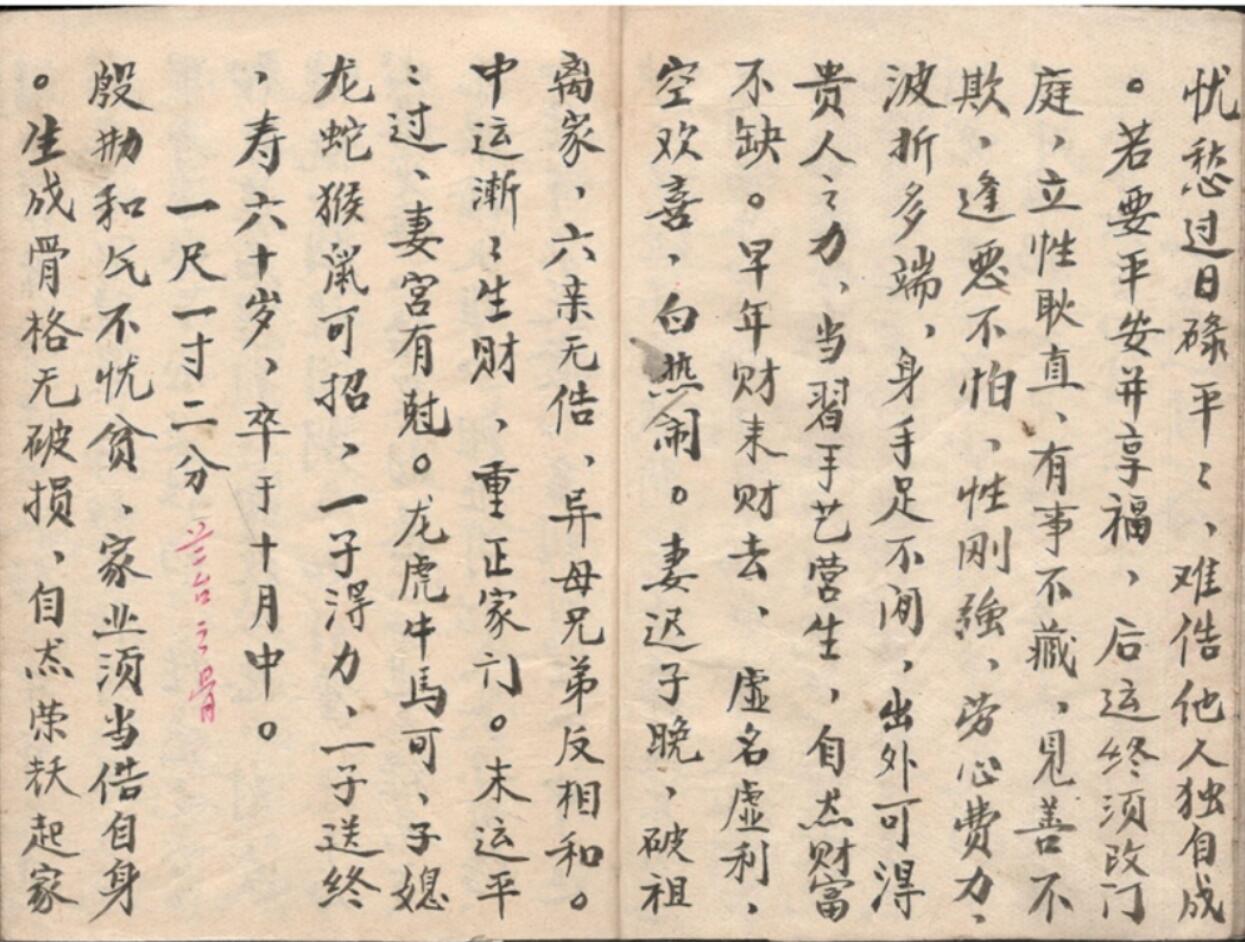 忧愁过日碌平〻、难俈他人独自成
。若要平安并享福、后运终须改门
庭，立性耿直、有事不藏，见善不
欺，逢恶不怕、性刚強、劳心费力、
波折多端，身手足不闲，出外可淂
贵人之力、当習手艺营生，自杰财富
不缺。早年财来财去、虚名虚利，
空欢喜，白热闹。妻迟子晚，破祖
离家，六亲无俈、异母兄弟反相和。
中运渐〻生财、重正家门。末运平
〻过、妻宫有尅。龙虎牛馬可、子媳
龙蛇猴鼠可招、一子淂力、一子送终
，寿六十岁，卒于十月中。
一尺一寸二分 兰台之骨
殷勤和气不忧贫、家业须当俈自身
。生成骨格无破损、自杰荣袄起家